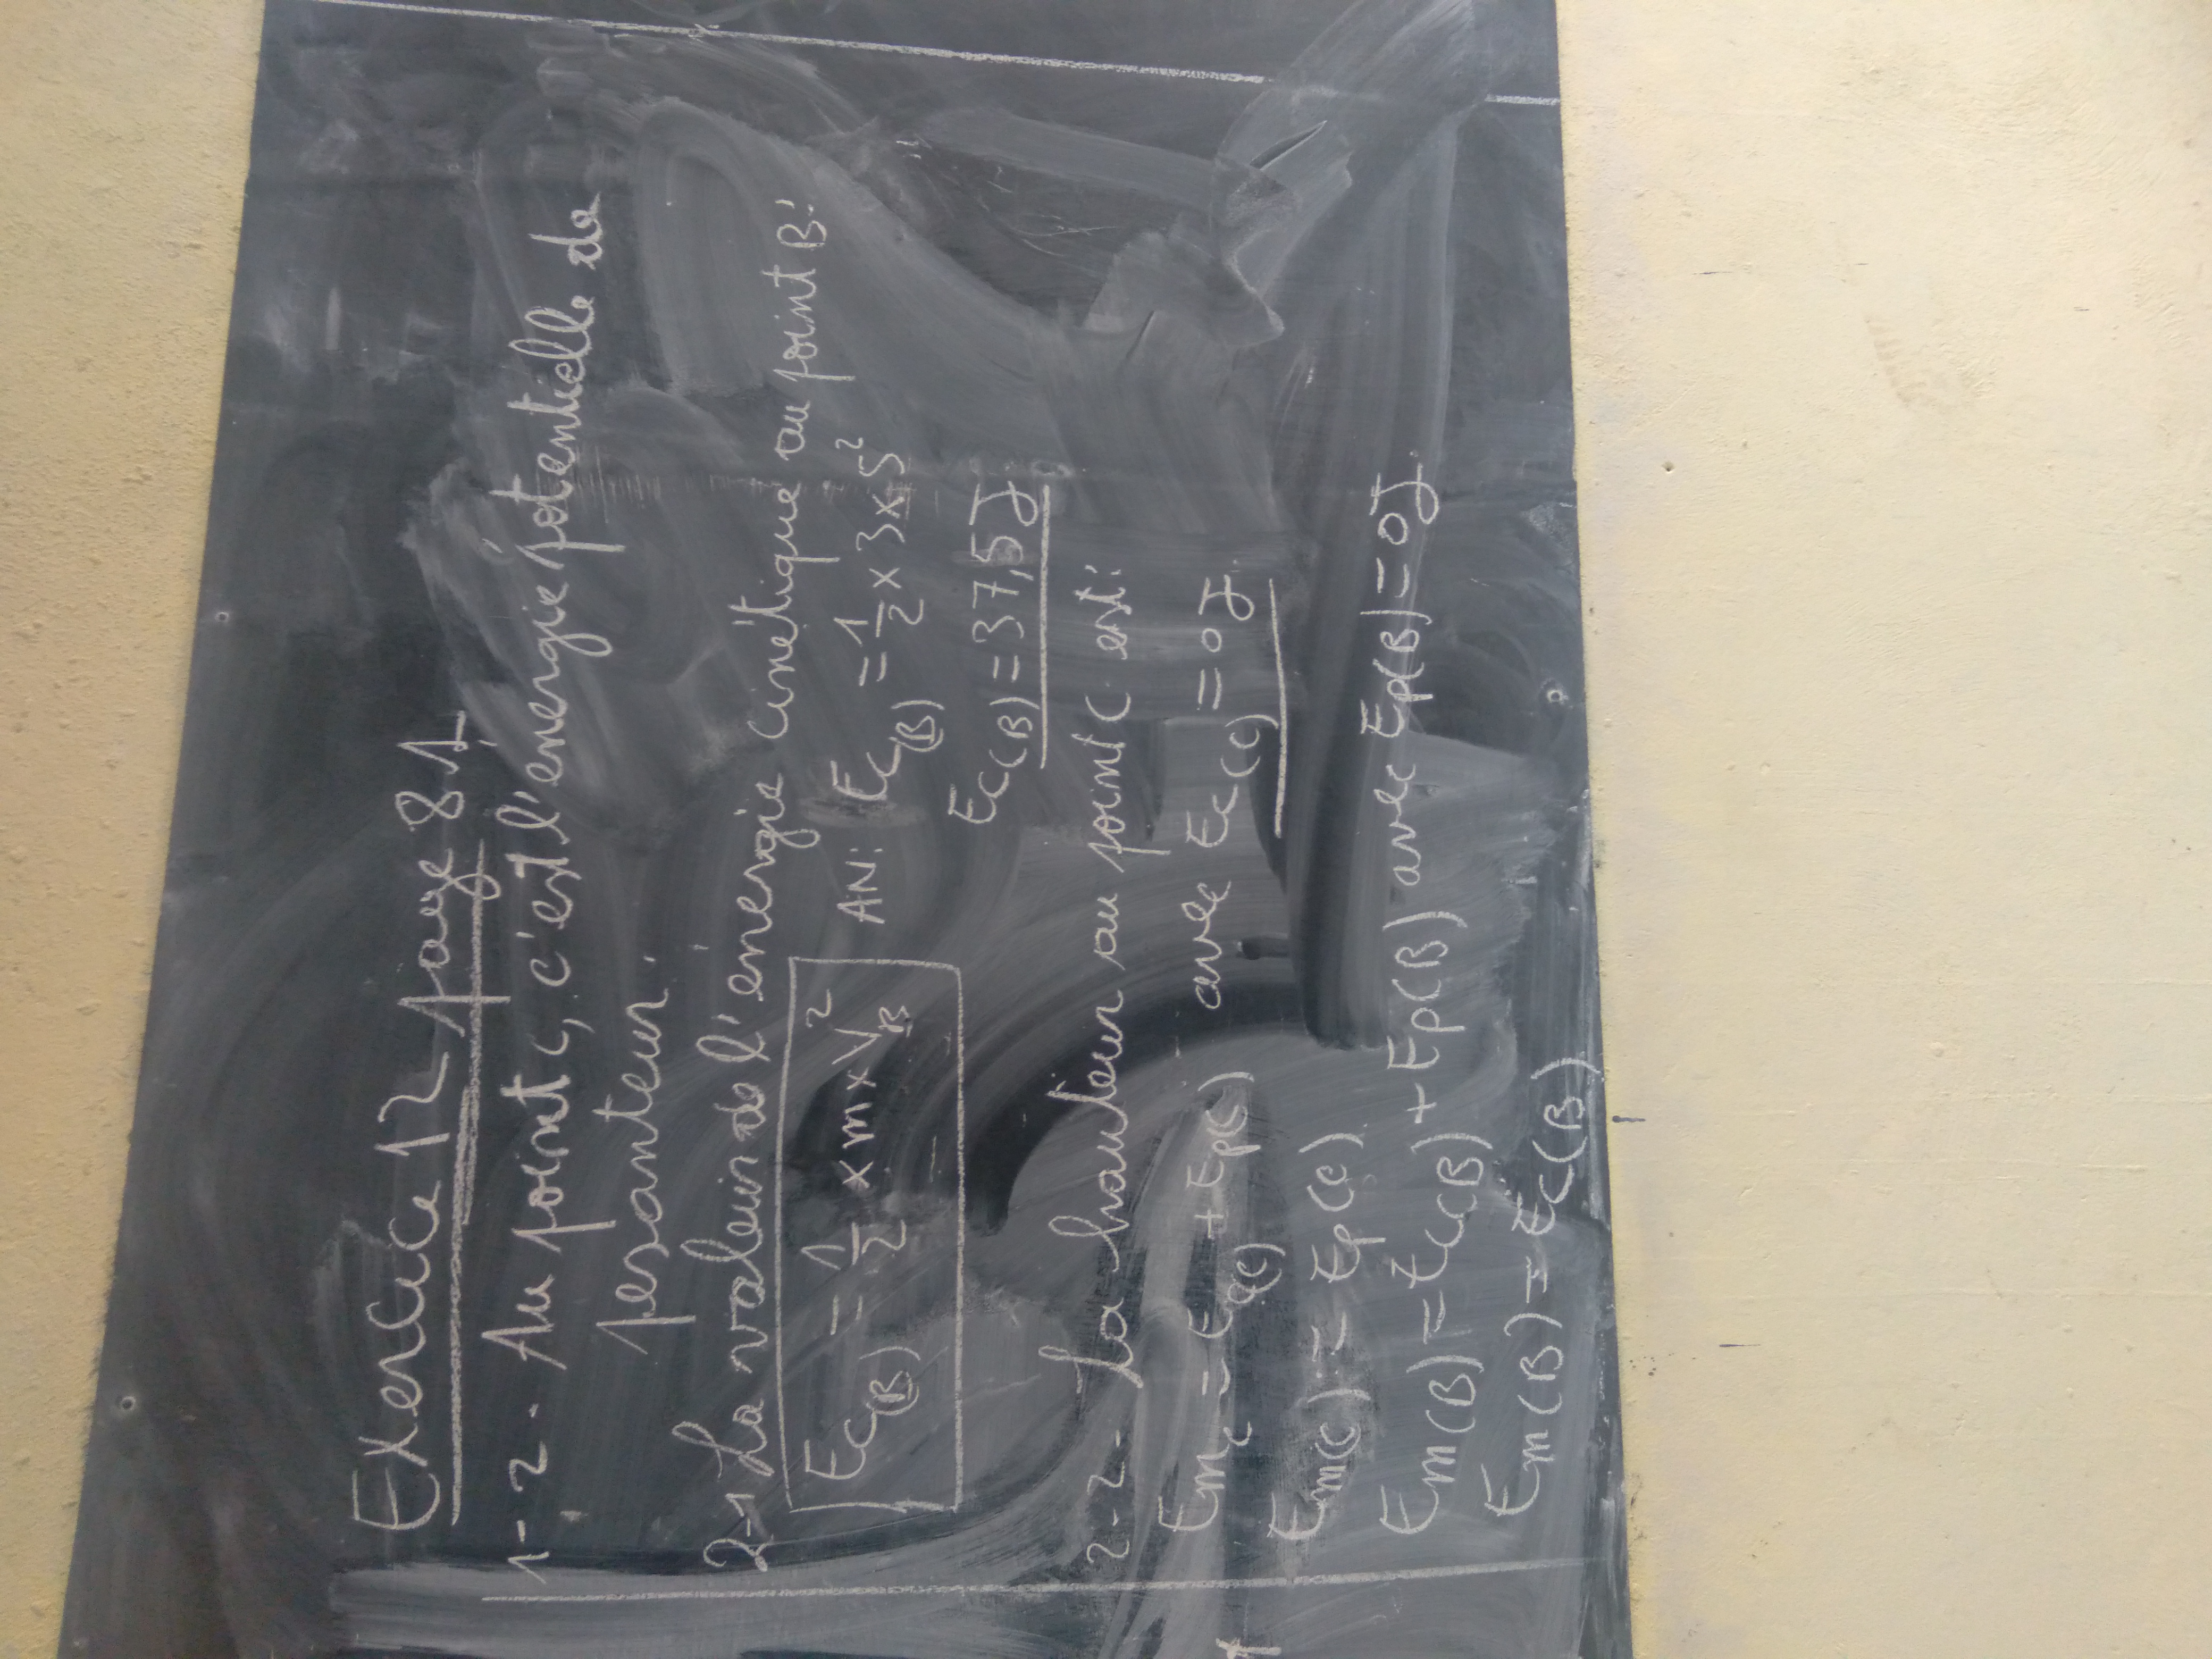 Exercice 12 page 81
1-2- Au point C, c'est l'énergie potentielle de
pesanteur.
2-1 La valeur de l'énergie cinétique au point B:
Ec(B) = 1/2 x m x V_B² AN: Ec(B) = 1/2 x 3 x 5²
Ec(B) = 37,5J
2-2- La hauteur au point C est:
Em_C = Ec(C) + Ep(C) avec Ec(C) = 0J.
Em(C) = Ep(C).
Em(B) = Ec(B) + Ep(B) avec Ep(B) = 0J.
Em(B) = Ec(B)